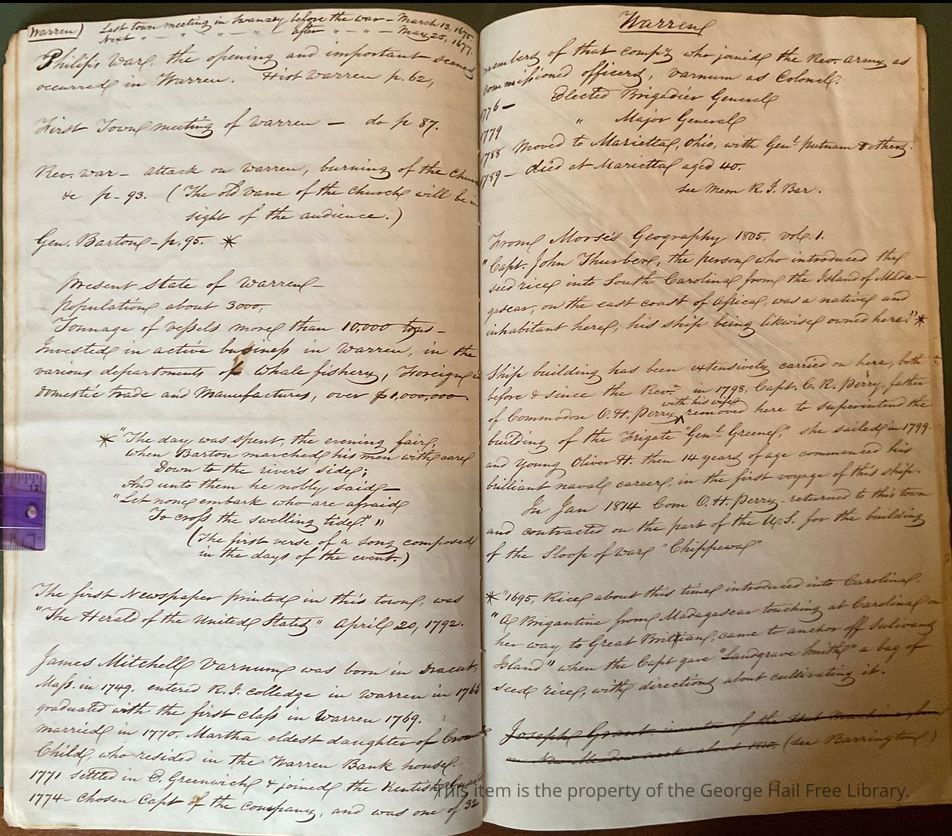 Warren) Last town meeting in Swansey before the war - March 13, 1675
Next " - " - " - " - " after " - " - May 25, 1677.
Philip's war, the opening and important scenes
occurred in Warren. Hist Warren p. 62,
First Town meeting of Warren — do p 87.
Rev. war - attack on Warren, burning of the Church
&c p - 93. (The old vane of the Church will be in
sight of the audience.)
Gen. Barton - p. 95. *
Present state of Warren
Population about 3000,
Tonnage of vessels more than 10,000 tons -
Invested in active business in Warren, in the
various departments of Whale fishery, Foreign
domestic trade and Manufactures, over $1,000,000
* "The day was spent, the evening fair,
When Barton marched his men with care
Down to the river's side;
And unto them he nobly said
"Let none embark who are afraid
To cross the swelling tide." "
(The first verse of a song composed
in the days of the event.)
The first Newspaper printed in this town, was
"The Herald of the United States" April 20, 1792.
James Mitchell Varnum was born in Dracut,
Mass. in 1749. entered R.I. colledge in Warren in 1765
graduated with the first class in Warren 1769.
married in 1770, Martha eldest daughter of Cromel
Child, who resided in the Warren Bank house.
1771 settled in E. Greenwich & joined the Kentish Guards
1774 - Chosen Capt of the company, and was one of 32
Warren
members of that compy who joined the Rev. army as
commissioned officers, Varnum as Colonel.
1776 - Elected Brigadier General
1779 " Major General
1788 Moved to Marietta, Ohio, with Genl Putnam & others.
1789 - died at Marietta aged 40.
see Mem R. I. Bar.
From Morse's Geography 1805. vol. 1.
"Capt. John Thurber, the person who introduced the
seed rice into South Carolina from the Island of Mada-
gascar, on the east coast of Africa, was a native and
inhabitant here, his ship being likewise owned here." *
Ship building has been extensively carried on here, both
before & since the Revn. in 1798, Capt. C. R. Perry, father
of Commodore O. H. Perry with his wife removed here to superintend the
building of the Frigate "Genl. Greene," she sailed in 1799.
and young Oliver H. then 14 years of age commenced his
brilliant naval career, in the first voyage of this ship.
In Jan 1814 Com O. H. Perry returned to this town
and contracted on the part of the U.S. for the building
of the Sloop of war "Chippewa"
* "1695. Rice about this time introduced into Carolina.
"A Brigantine from Madagascar touching at Carolina on
her way to Great Brittian, came to anchor off Sulivans
Island" when the Capt gave "Landgrave Smith" a bag of
seed rice, with directions about cultivating it.
Joseph Grant inventor of the Hat Machine,
(see Barrington)
This item is the property of the George Hail Free Library.